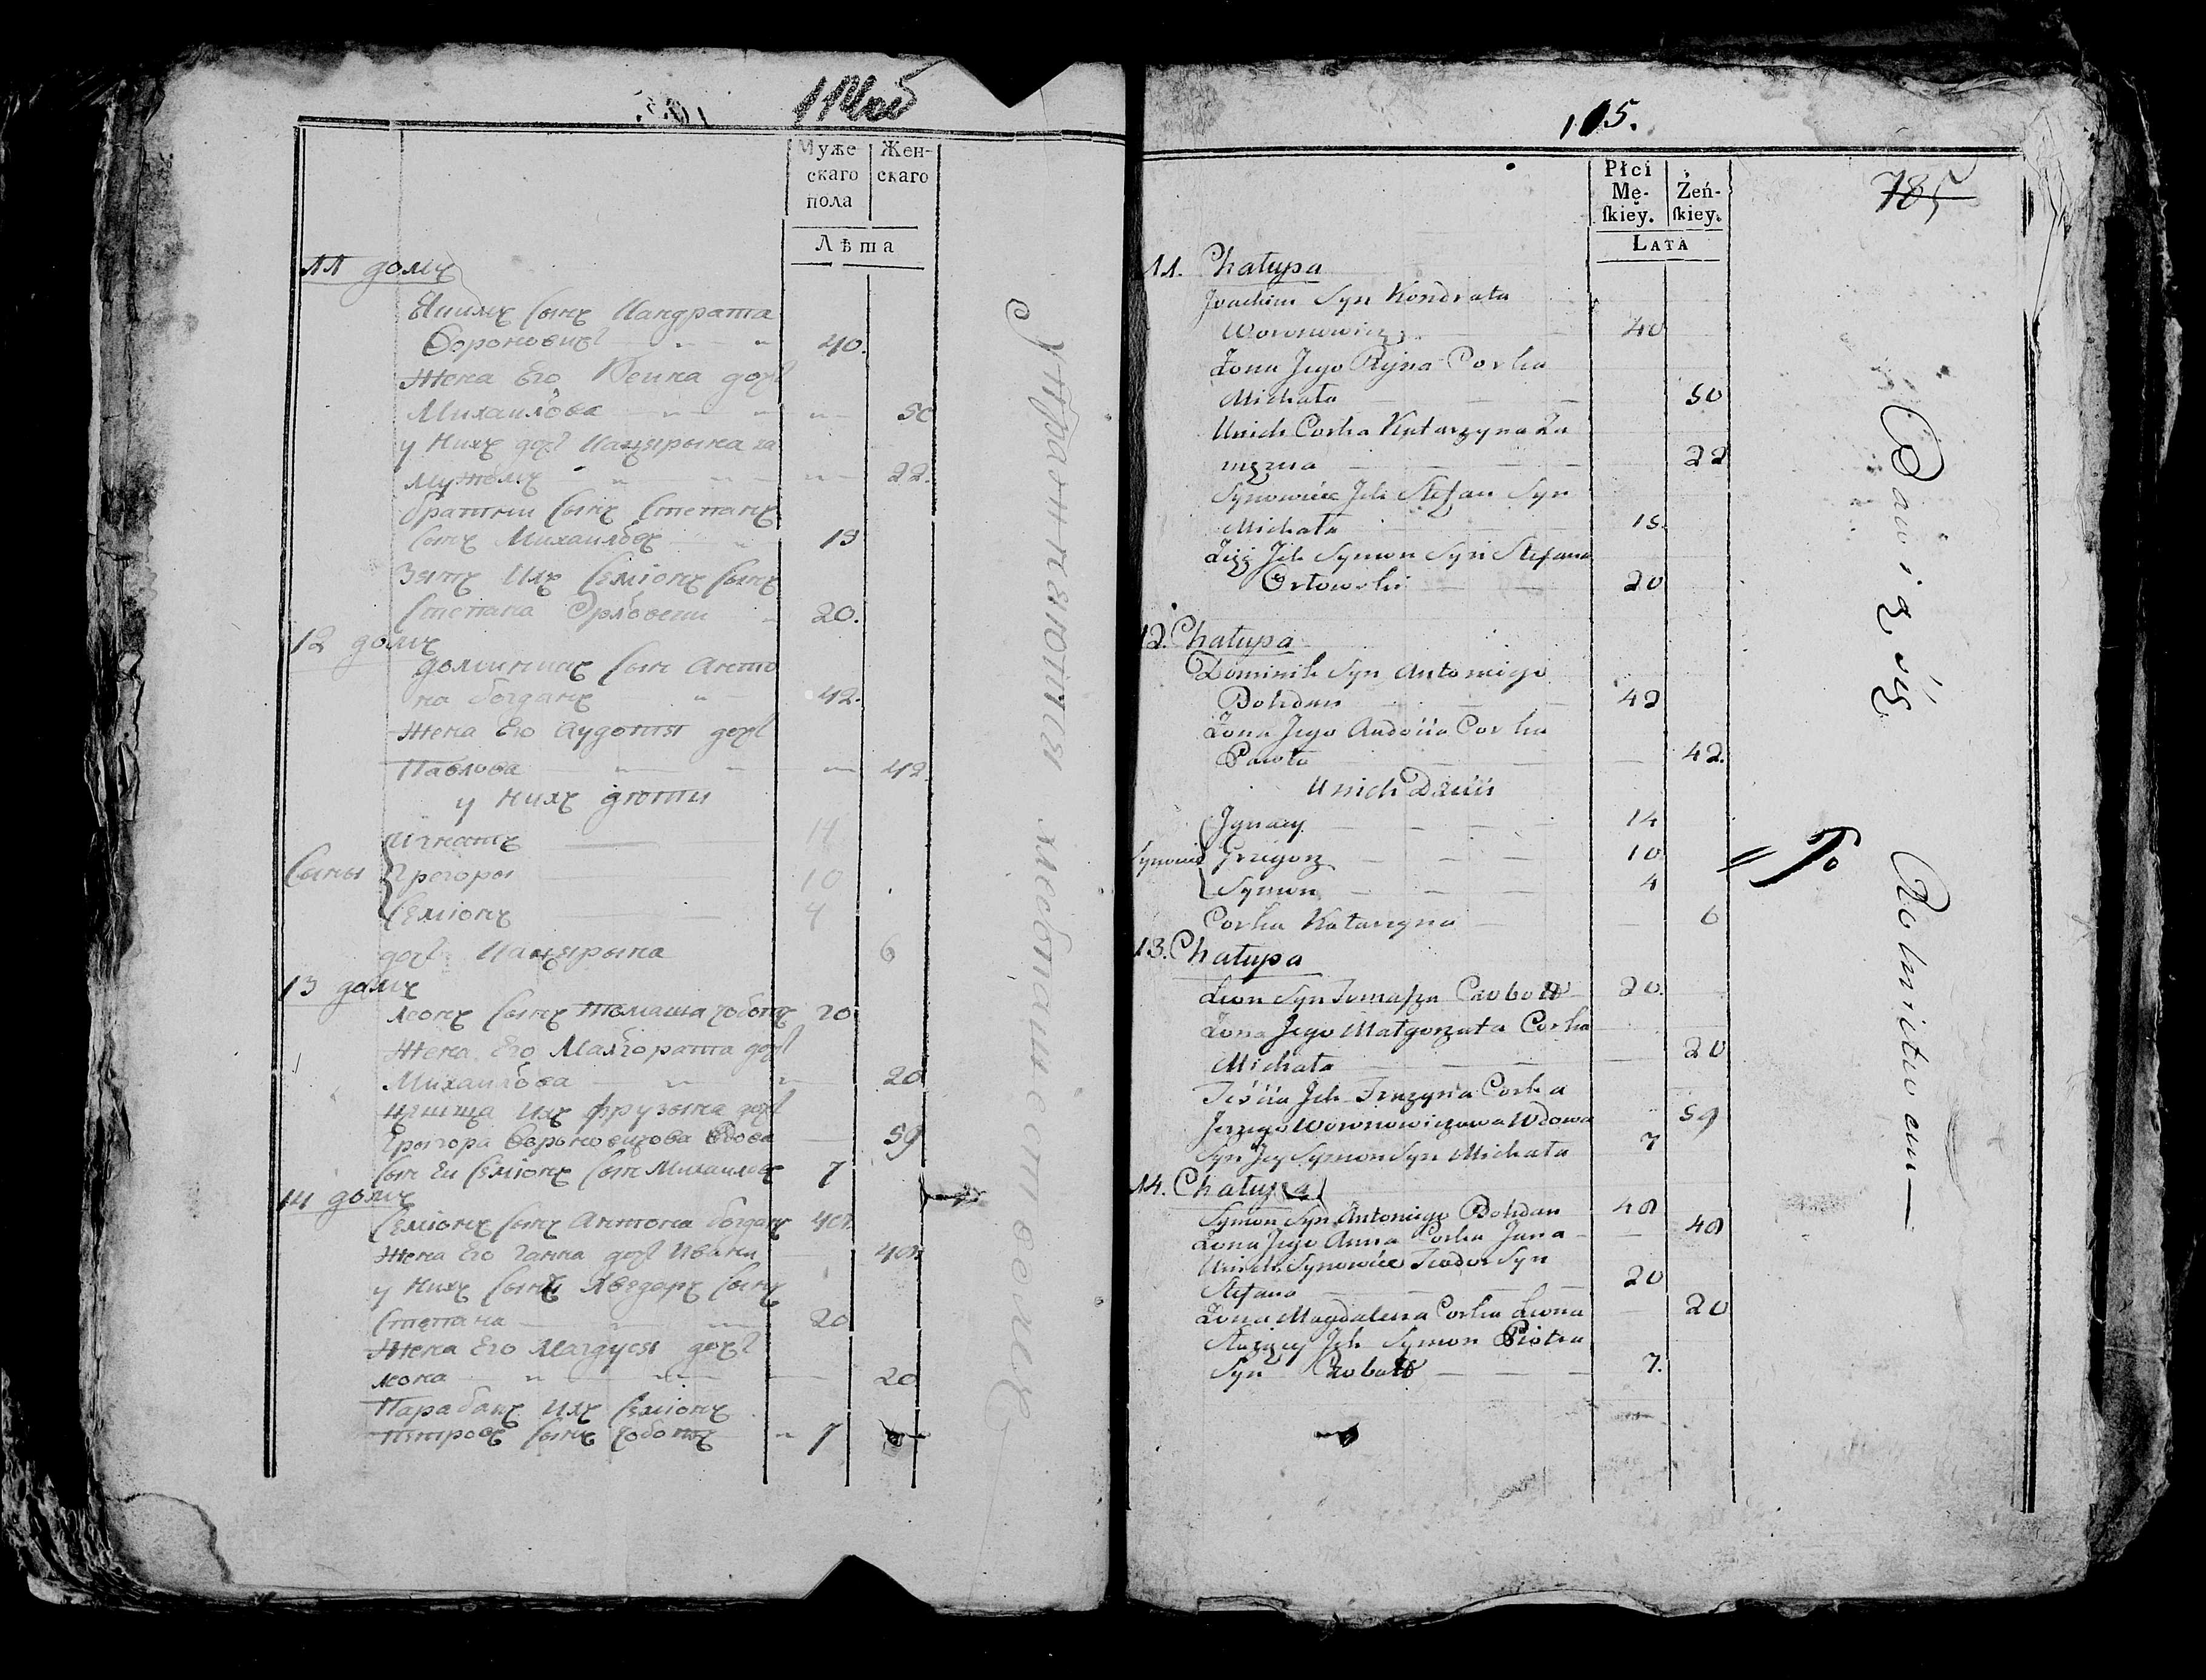 Муже
скаго
пола
Жен-
скаго
Лѣта
11 домъ
Якимъ сынъ Кандрата
Вороновичъ 40.
Жена Его доч
Михаилова 50
у Нихъ доч Кацярына за
мужомъ 22.
братни сынъ Степанъ
сынъ Михаиловъ 15
Зять Ихъ Семіонъ сынъ
Степана Орловски 20.
12 домъ
Доминикъ сын Анто
на Богданъ 42.
Жена Его Аудотя доч
Павлова 42.
у нихъ дюти
Игнатъ 14
Сыны Грегоры 10
Семіонъ 4
доч Кацярына 6
13 домъ
Леонъ сынъ Томаша Чоботъ 20
Жена Его Малгората доч
Михаилова 20
Цешща Ихъ Фрузына доч
Грыгора Вороновичова Вдова 59
сын Еи Семіонъ сын Михаиловъ 7
14 домъ
Семіонъ сынъ Антона Богданъ 48
Жена Его Ганна доч Ивана 48
у Нихъ сынъ Хведаръ сынъ
Степана 20
Жена Его Магдуся доч
Леона 20
Парабакъ Ихъ Семіонъ
Пётровъ сынъ Чоботъ 7
Упражняются мѣстничествомъ
115.
785
Płci
Mę-
ſkiey.
Żeń-
ſkiey.
Lata
11. Chałupa
Joachim Syn Kondrata
Woronowicz 40
Żona Jego Ryna Corka
Michała 50
Unich Corka Katarzyna Za
mężna 22
Synowiec Jch Stefan Syn
Michała 15
Zięć Jch Symon Syn Stefana
Orłowski 20
12. Chałupa
Dominik Syn Antoniego
Bohdan 42
Żona Jego Audocia Corka
Pawła 42.
Unich Dzieci
Jgnacy 14
Synowie Grzegorz 10
Symon 4
Corka Katarzyna 6
13. Chałupa
Leon Syn Tomaſza Czobott 20.
Żona Jego Małgorzata Corka
Michała 20
Teścia Jch Fruzyna Corka
Jerzego Woronowiczowa Wdowa 59
Syn Jey Symon Syn Michała 7
14. Chałupa
Symon Syn Antoniego Bohdan 48
Żona Jego Anna Corka Jana 48
Unich Synowiec Teodor Syn
Stefana 20
Żona Magdalena Corka Leona 20
Służący Jch Symon Piotra
Syn Czobott 7.
Bawią się Rolnictwem